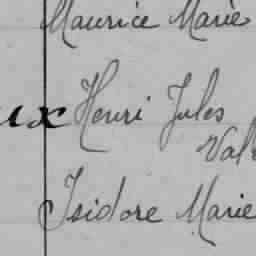 Maurice Marie
ux Henri Jules
Isidore Marie